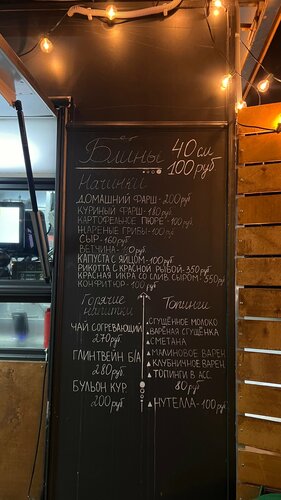 от
Блины 40 см
100 руб
Начинки
ДОМАШНИЙ ФАРШ - 200 руб
КУРИНЫЙ ФАРШ - 180 руб
КАРТОФЕЛЬНОЕ ПЮРЕ - 100 руб.
ЖАРЕНЫЕ ГРИБЫ - 100 руб.
СЫР - 160 руб
ВЕТЧИНА - руб
КАПУСТА С ЯЙЦОМ - 100 руб
РИКОТТА С КРАСНОЙ РЫБОЙ - 350 руб
КРАСНАЯ ИКРА СО СЛИВ. СЫРОМ - 350 руб
КОНФИТЮР - 100 руб
Горячие
напитки
ЧАЙ СОГРЕВАЮЩИЙ
270 руб
ГЛИНТВЕЙН Б/А
280 руб.
БУЛЬОН КУР.
200 руб
Топинги
СГУЩЁННОЕ МОЛОКО
ВАРЁНАЯ СГУЩЁНКА
СМЕТАНА
МАЛИНОВОЕ ВАРЕН.
КЛУБНИЧНОЕ ВАРЕН.
ТОПИНГИ В АСС.
80 руб
НУТЕЛЛА - 100 руб.